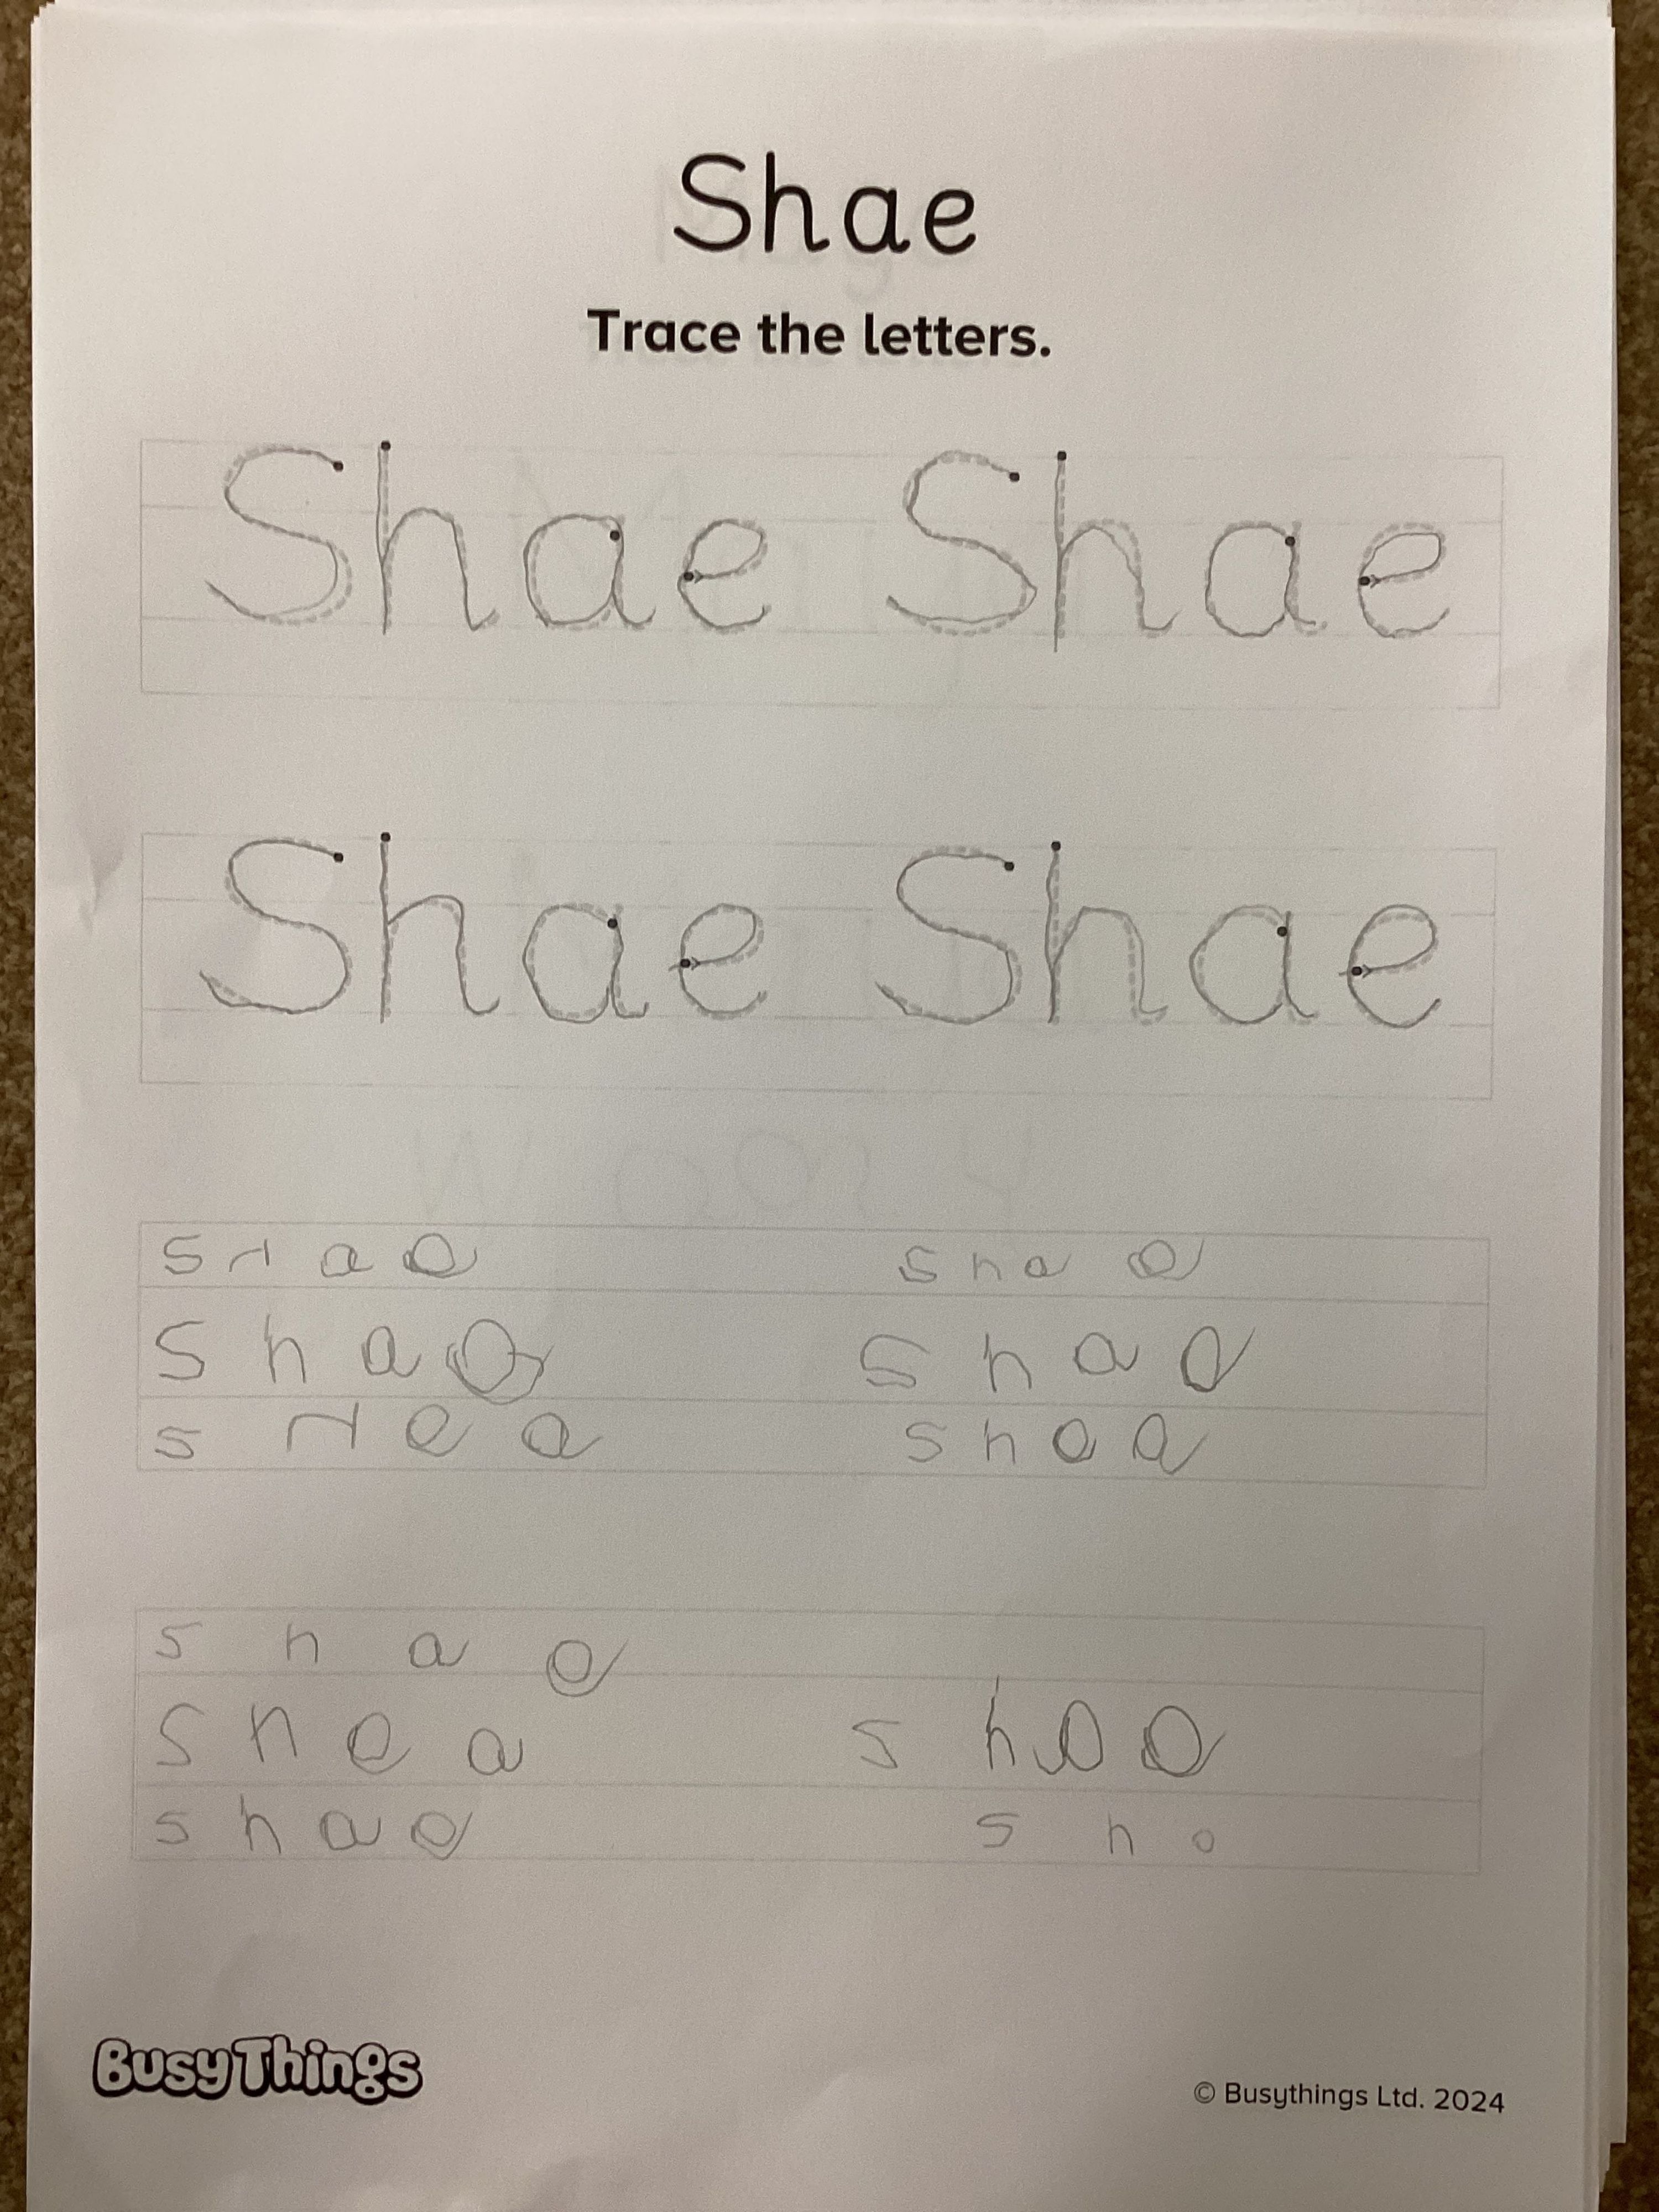 Shae
Trace the letters.
Shae Shae
Shae Shae
s h a e s h a e
s h a e s h a e
s h e a s h e a
s h a e
s h e a s h
s h a e s h
BusyThings
© Busythings Ltd. 2024